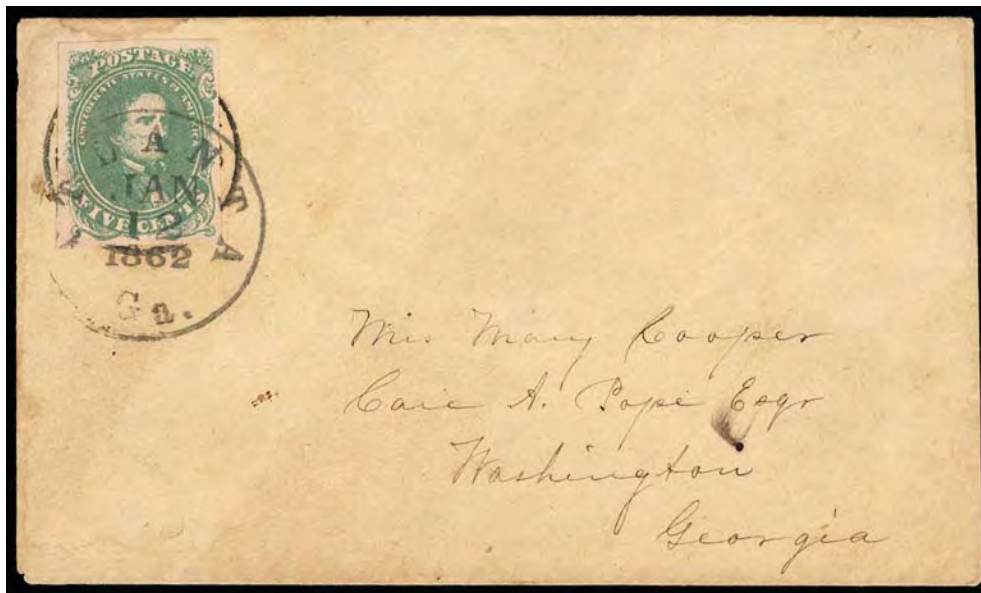 POSTAGE
CONFEDERATE STATES OF AMERICA
FIVE CENTS
ATLANTA
JAN
12
1862
Ga.
Mary Cooper
Care A. Pope Esqr
Washington
Georgia